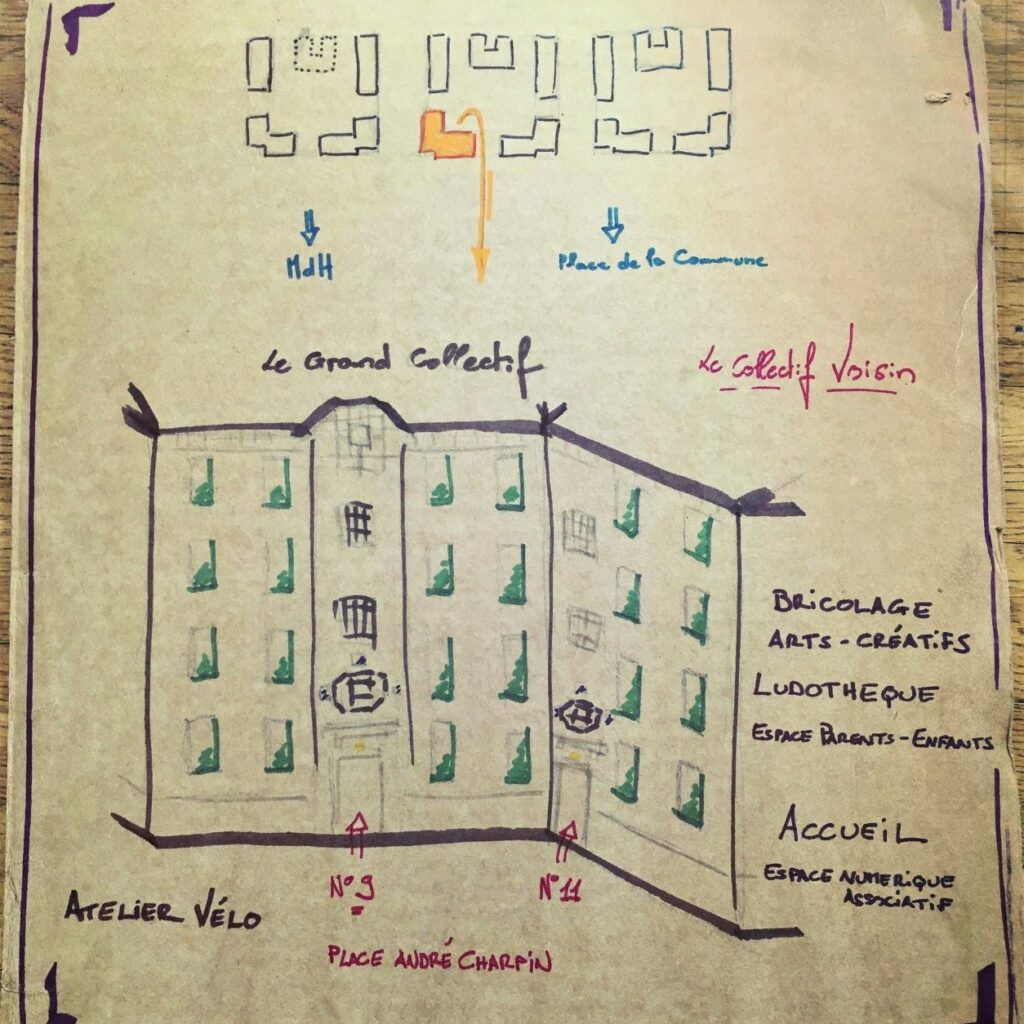 MdH
Place de la Commune
Le Grand Collectif
Le Collectif Voisin
BRICOLAGE
ARTS - CRÉATIFS
LUDOTHEQUE
ESPACE PARENTS - ENFANTS
ACCUEIL
ESPACE NUMERIQUE
ASSOCIATIF
N° 9
N° 11
ATELIER VÉLO
PLACE ANDRÉ CHARPIN